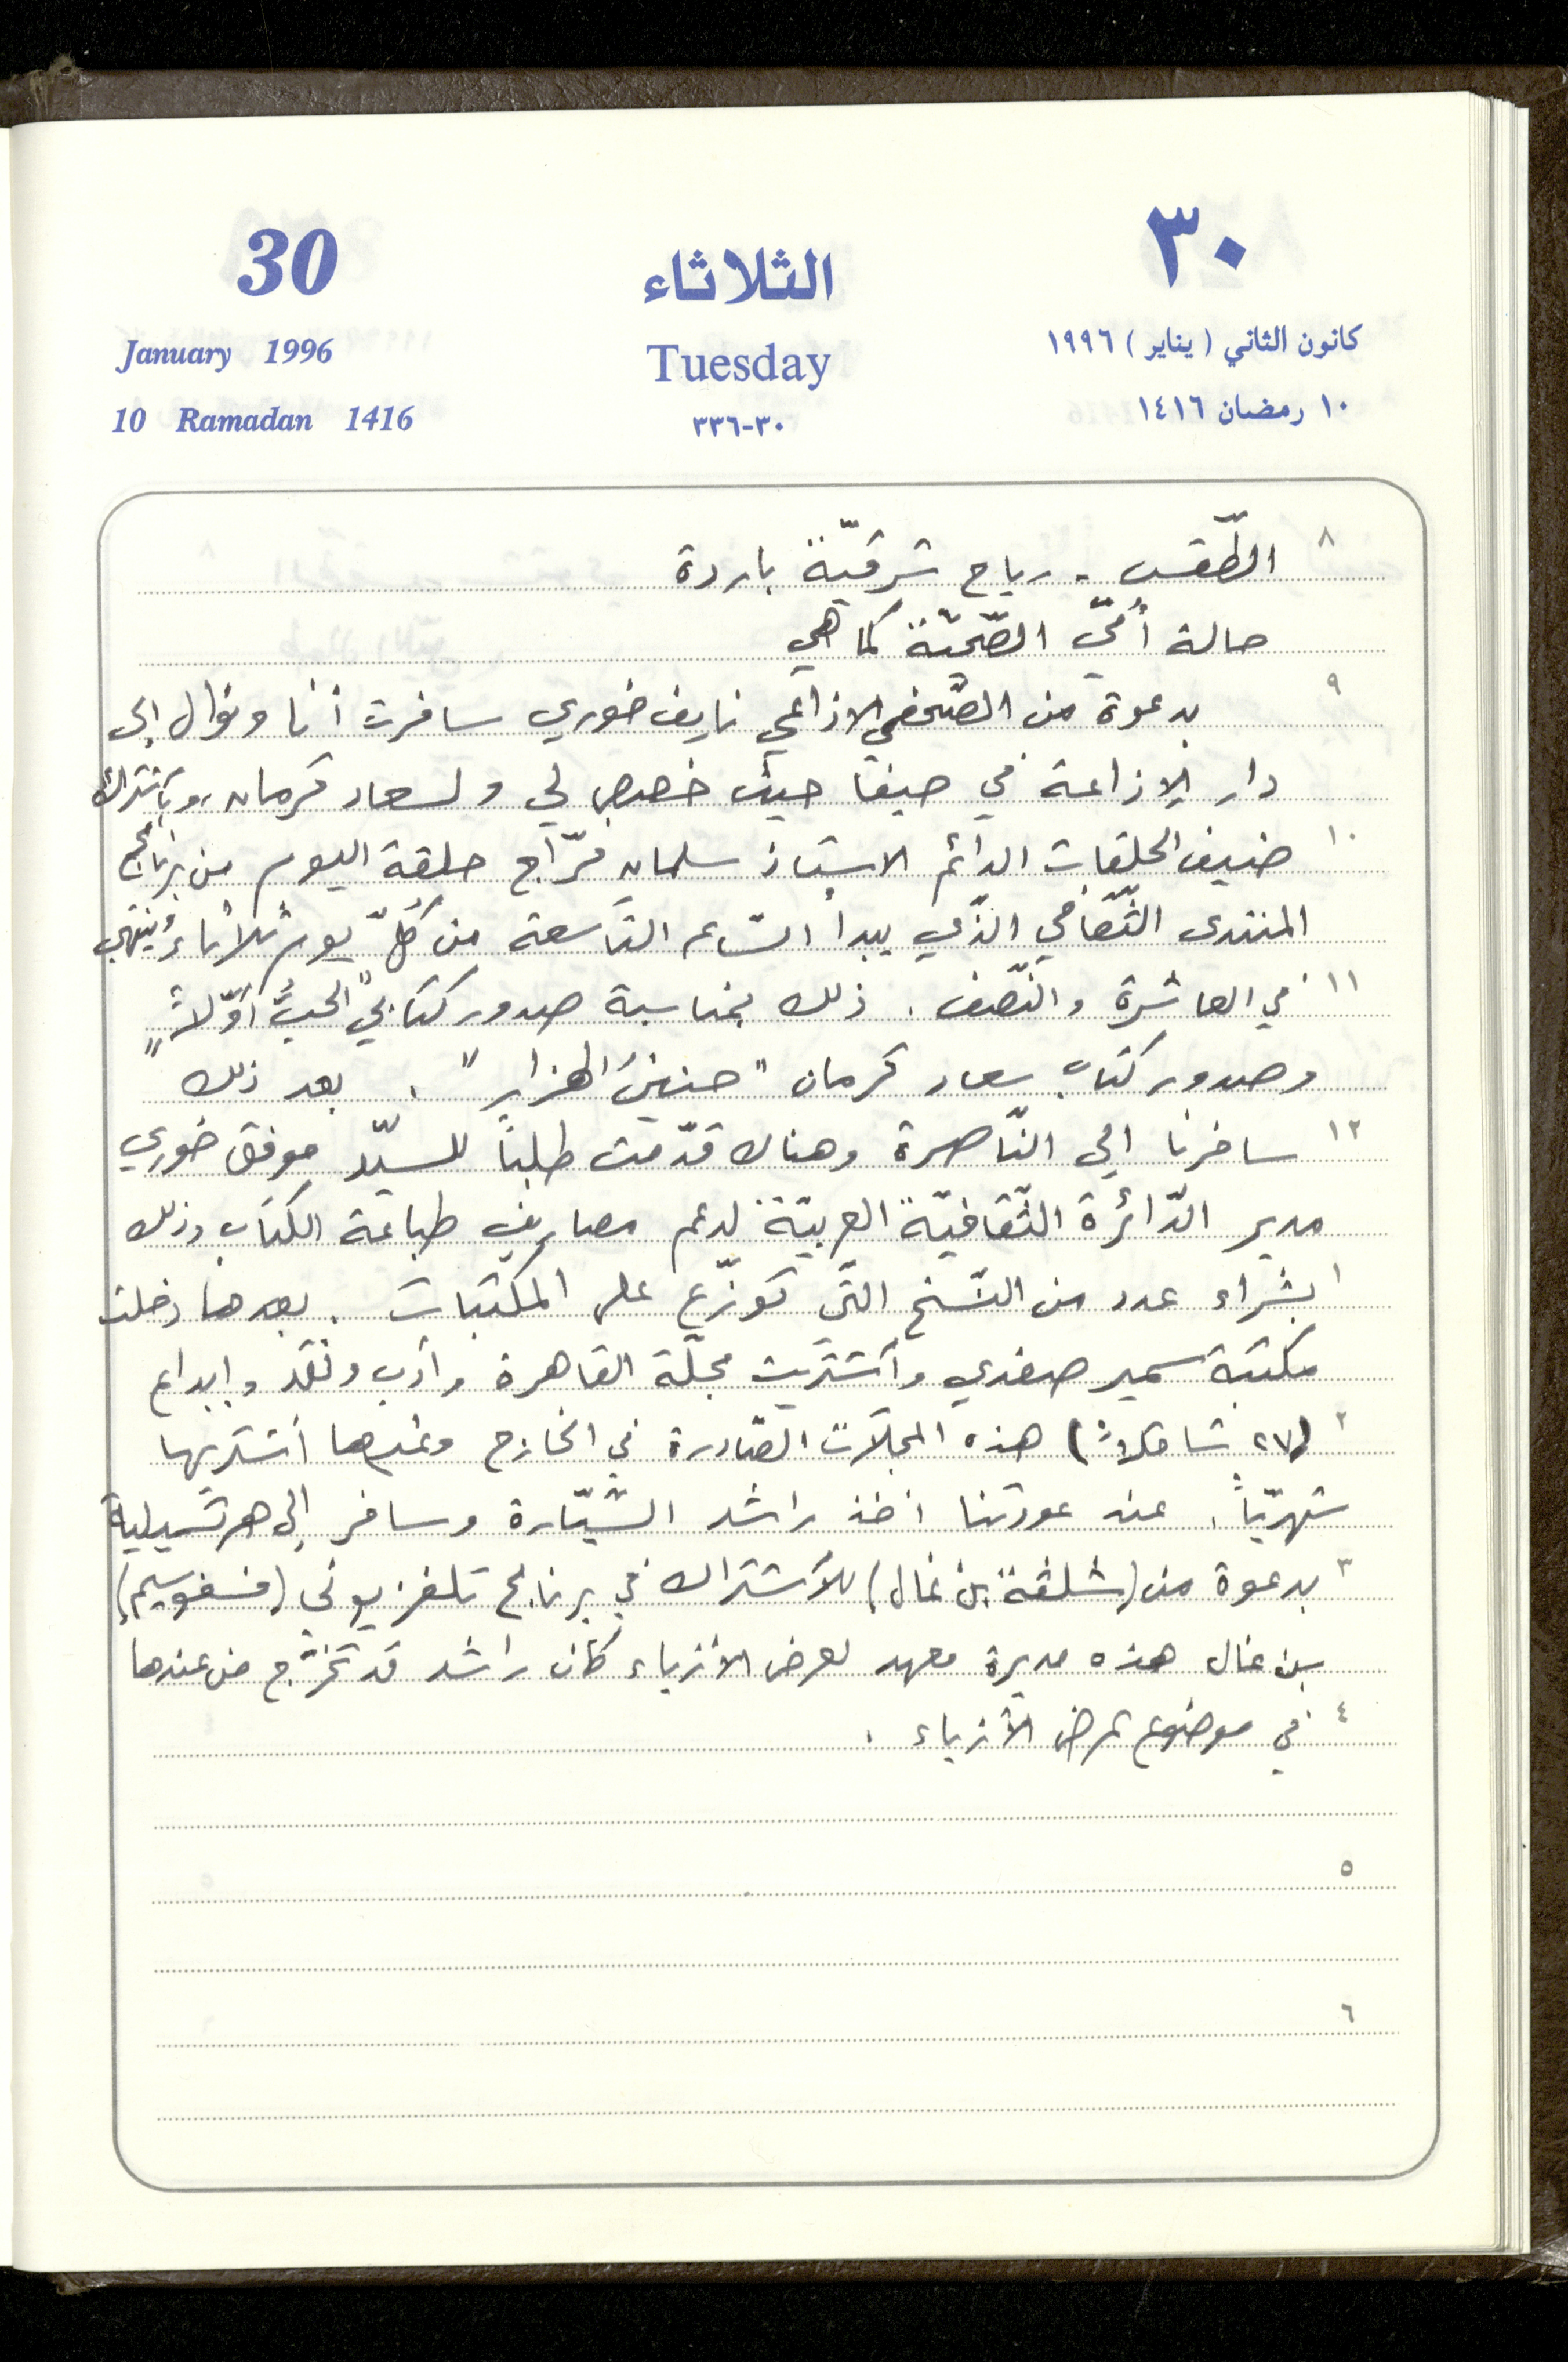 30
الثلاثاء
٣٠
January 1996
Tuesday
كانون الثاني (يناير) ١٩٩٦
10 Ramadan 1416
٣٠-٣٣٦
١٠ رمضان ١٤١٦
٨ الطّقس - رياح شرقيّة باردة
حالة أُمّي الصّحيّة كما هي
٩ بدعوة من الصّحفي الاذاعي نايف خوري سافرت أنا ونوال إلى
دار الإذاعة في حيفا حيث خصص لي ولسعاد قرمان، وبٱشتراك
١٠ ضيف الحلقات الدائم الاستاذ سلمان فرّاج حلقة اليوم من برنامج
المنتدى الثّقافي الذّي يبدأ السّاعه التّاسعة من كلّ يوم ثلاثاء وينتهي
١١ في العاشرة والنّصف. ذلك بمناسبة صدور كتابي "الحبُّ أوّلاً"
وصدور كتاب سعاد قرمان "حنين الهزار". بعد ذلك
١٢ سافرنا الى النّاصرة وهناك قدّمت طلبًا للسيّد موفق خوري
مدير الدّائرة الثّقافيّة العربيّة لدعم مصاريف طباعة الكتاب وذلك
١ بشراء عدد من النّسخ التّي توزّع على المكتبات. بعدها دخلت
مكتبة سمير صفدي وٱشتريت مجلّة القاهرة وأدب ونقد وإبداع
٢ (٢٧ شاقلاً) هذه المجلّات الصّادرة في الخارج وغيرها أشتريها
شهريّاً. عند عودتنا أخذ راشد السّيّارة وسافر إلى هرتسيلية
٣ بدعوة من (شلڤة بن غال) للٱشتراك في برنامج تلفزيوني (فسفوسيم)
بن غال هذه مديرة معهد لعرض الأزياء كان راشد قد تخرّج من عندها
٤ في موضوع عرض الأزياء.
٥
٦